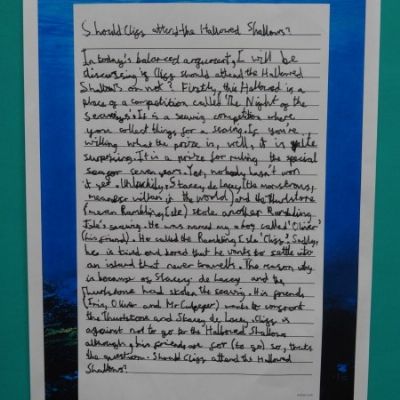 Should Cliff attend the Hallowed Shallows?
In today's balanced argument, I will be
discussing if Cliff should attend the Hallowed
Shallows or not? Firstly, this Hallowed is a
place of a competition called The Night of the
Seawigs. It is a seawig competiton where
you collect things for a seawig. If you're
willing what the prize is, well, it is quite
surprising. It is a prize for ruling the special
sea for seven years. Yet, nobody hasn't won
it yet. Unluckily, Stacey de Lacey (the monstrous,
meanest villain in the world) and the Thurlstone
(maven Rambling Isle) stole another Rambling
Isle's seawig. He was named by a boy called 'Oliver'
(his friend). He called the Rambling Isle 'Cliff'. Sadly,
he is tired and bored that he wants to settle into
an island that never travels. The reason why
is because of Stacey de Lacey and the
Thurlstone had stolen the seawig. His friends
(Iris, Oliver and Mr Culpeper) wants to confront
the Thurlstone and Stacey de Lacey. Cliff is
against not to go to the Hallowed Shallows
although his friends are for (to go) so, thats
the question. Should Cliff attend the Hallowed
Shallows?